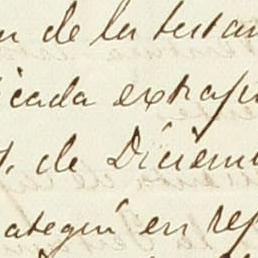 n de la testam
icada extraju
de Diciem
ategui en rep